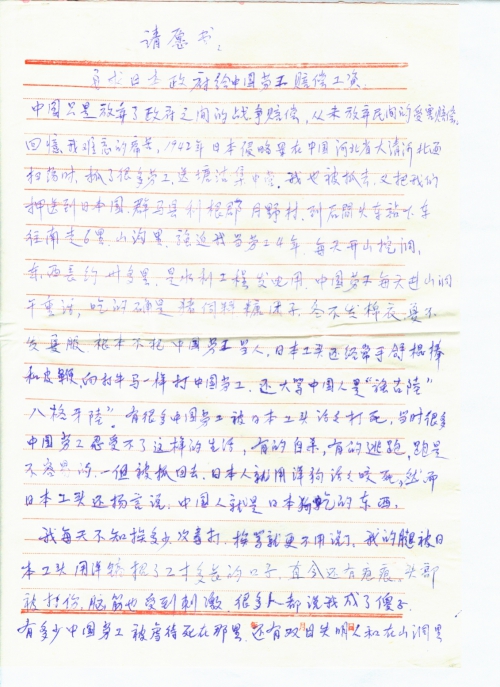 请愿书
要求日本政府给中国劳工赔偿工资。
中国只是放弃了政府之间的战争赔偿,从未放弃民间的受害赔偿,
回忆我难忘的痛苦,1942年日本侵略军在中国河北省大清河北通
扫荡时,抓了很多劳工,送塘沽集中营。我也被抓去,又把我们
押送到日本国,群马县利根郡月野村,到石间火车站下车
往南走6里,山沟里,强迫我当劳工4年,每天开山挖洞,
东西长约廿多里,是水利工程发电用,中国劳工每天进山洞
干重活,吃的确是猪饲料糠团子,冬不发棉衣,夏不
发单服,根本不把中国劳工当人,日本工头还经常手舒棍棒
和皮鞭,向打牛马一样打中国劳工,还大骂中国人是“
八格牙陸”。有很多中国劳工被日本工头活活打死,当时很多
中国劳工忍受不了这样的生活,有的自杀,有的逃跑,跑是
不容易的,一但被抓回去,日本人就用洋狗活活咬死,然而
日本工头还扬言说,中国人就是日本狗吃的东西,
我每天不知挨多少次毒打,挨骂就更不用说了,我的腿被日
本工头用洋镐根了2寸多长的口子,直今还有疤痕,头部
被打伤,脑筋也受到刺激,很多人都说我成了傻子。
有多少中国劳工被虐待死在那里,还有双目失明人和在山洞里